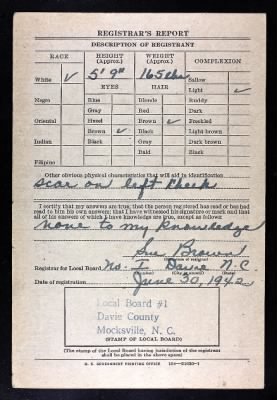 REGISTRAR'S REPORT
DESCRIPTION OF REGISTRANT
RACE HEIGHT (Approx.) WEIGHT (Approx.) COMPLEXION
White ✓ 5' 9" 165 lbs Sallow
Light ✓
EYES HAIR
Negro Blue Blonde Ruddy
Gray Red Dark
Oriental Hazel Brown ✓ Freckled
Brown ✓ Black Light brown
Indian Black Gray Dark brown
Bald Black
Filipino
Other obvious physical characteristics that will aid in identification
scar on left cheek
I certify that my answers are true; that the person registered has read or has
had read to him his own answers; that I have witnessed his signature or mark and that
all of his answers of which I have knowledge are true, except as follows:
none to my knowledge
Sue Brown
Registrar for Local Board No. 1 Davie N.C
(Number) (City or county) (State)
Date of registration June 30, 1942
Local Board #1
Davie County
Mocksville, N. C.
(STAMP OF LOCAL BOARD)
(The stamp of the Local Board having jurisdiction of the registrant
shall be placed in the above space)
U. S. GOVERNMENT PRINTING OFFICE